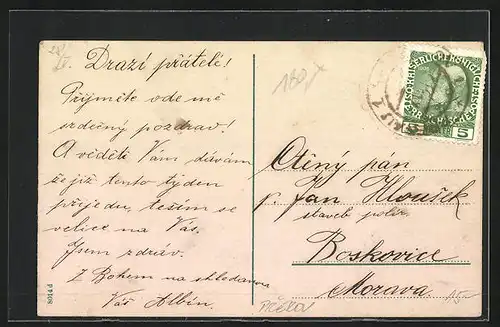 Drazí přátelé!
Přijměte ode mě
srdečný pozdrav!
A věděti Vám dávám
že již tento týden
přijedu, těším se
velice na Vás.
Jsem zdráv.
Z Bohem na shledanou
Váš Albín.
8014d
180,-
KAISERLICHE KÖNIGLICHE
5 5
Ctěný pán
p. Jan Hloušek
staveb. polír.
Boskovice
Morava.
15-